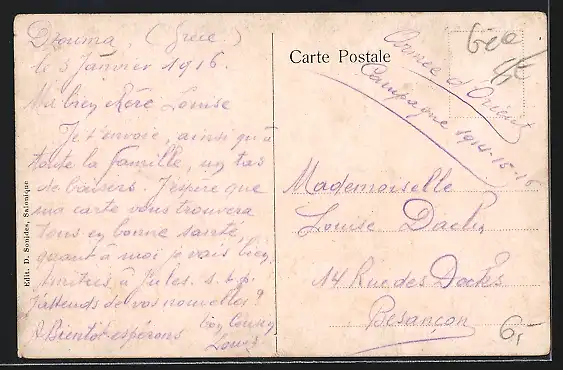 Drouma, (Grèce.)
le 5 Janvier 1916.
Ma bien chère Louise
Je t'envoie, ainsi qu'à
toute la famille, un tas
de baisers. J'espère que
ma carte vous trouvera
tous en bonne santé,
quant à moi je vais bien.
à Jules. s.t.p.
J'attends de vos nouvelles?
A Bientôt espérons
ton cousin
Louis
Edit. D. Sonides, Salonique
Carte Postale
Armée d'Orient
Campagne 1914-15-16
Mademoiselle
Louise
14 Rue des Doctes
Besançon
6,-